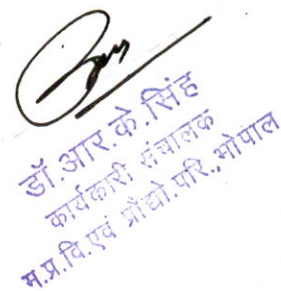 डॉ. आर. के. सिंह
कार्यकारी संचालक
म.प्र.वि.एवं प्रौद्यो.परि.,भोपाल